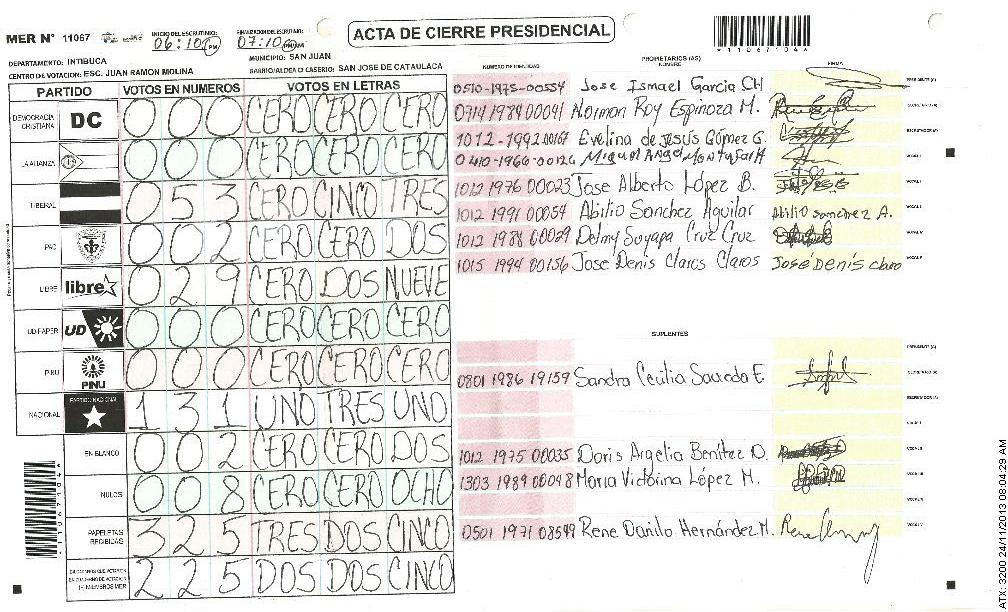 MER N° 11067 INICIO DEL ESCRUTINIO: 06:10 PM FINALIZACION DEL ESCRUTINIO: 07:10 PM
ACTA DE CIERRE PRESIDENCIAL
*110671046*
DEPARTAMENTO: INTIBUCA MUNICIPIO: SAN JUAN
CENTRO DE VOTACION: ESC. JUAN RAMON MOLINA BARRIO/ALDEA O CASERIO: SAN JOSE DE CATAULACA
PARTIDO VOTOS EN NUMEROS VOTOS EN LETRAS
DEMOCRACIA CRISTIANA DC 0 0 0 CERO CERO CERO
LA ALIANZA 0 0 0 CERO CERO CERO
LIBERAL 0 5 3 CERO CINCO TRES
PAC 0 0 2 CERO CERO DOS
LIBRE libre 0 2 9 CERO DOS NUEVE
UD/FAPER UD 0 0 0 CERO CERO CERO
PINU PINU 0 0 0 CERO CERO CERO
NACIONAL PARTIDO NACIONAL 1 3 1 UNO TRES UNO
EN BLANCO 0 0 2 CERO CERO DOS
NULOS 0 0 8 CERO CERO OCHO
PAPELETAS RECIBIDAS 3 2 5 TRES DOS CINCO
CIUDADANOS QUE VOTARON EN CUADERNO DE VOTACION (+) MIEMBROS MER 2 2 5 DOS DOS CINCO
PROPIETARIOS (AS)
NUMERO DE IDENTIDAD NOMBRE FIRMA
0510-1975-00554 Jose Ismael Garcia CH PRESIDENTE (A)
0714 1984 00041 Norman Roy Espinoza M. SECRETARIO (A)
1012-1992 00167 Evelina de Jesús Gómez G. ESCRUTADOR (A)
0410-1966-00126 Miguel Angel VOCAL I
1012 1976 00023 Jose Alberto López B.
1012 1991 00054 Abilio Sanchez Aguilar Abilio sanchez A.
1012 1984 00029 Delmy Suyapa Cruz Cruz
1015 1994 00156 José Denis Claros Claros José Denis Claro
SUPLENTES
PRESIDENTE (A)
0801 1986 19159 Sandra Cecilia Saucedo E. SECRETARIO (A)
ESCRUTADOR (A)
VOCAL I
1012 1975 00035 Doris Argelia Benítez D.
1303 1989 00048 Maria Victorina López M.
0501 1971 08549 Rene Danilo Hernández M.
*110671046*
ATX: 3200 24/11/2013 08:04:29 AM